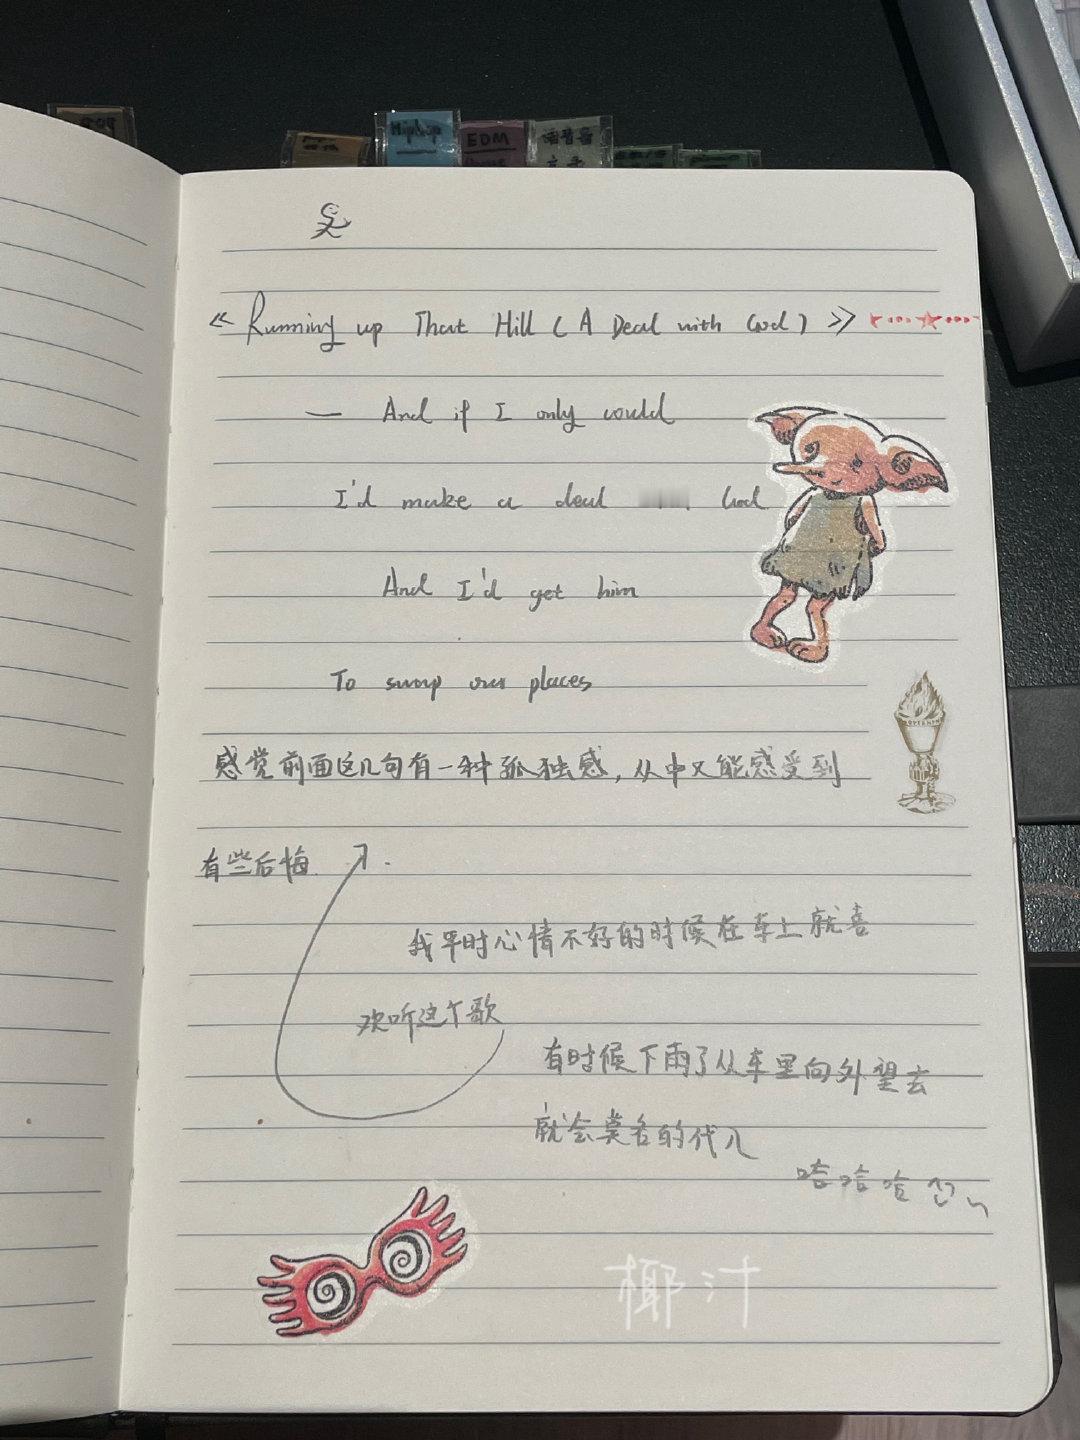 Hiphop
EDM
吴
《Running up That Hill (A Deal with God)》
— And if I only could
I'd make a deal God
And I'd get him
To swap our places
感觉前面这几句有一种孤独感，从中又能感受到
有些后悔.
我平时心情不好的时候在车上就喜
欢听这个歌
有时候下雨了从车里向外望去
就会莫名的代入
哈哈哈
椰汁